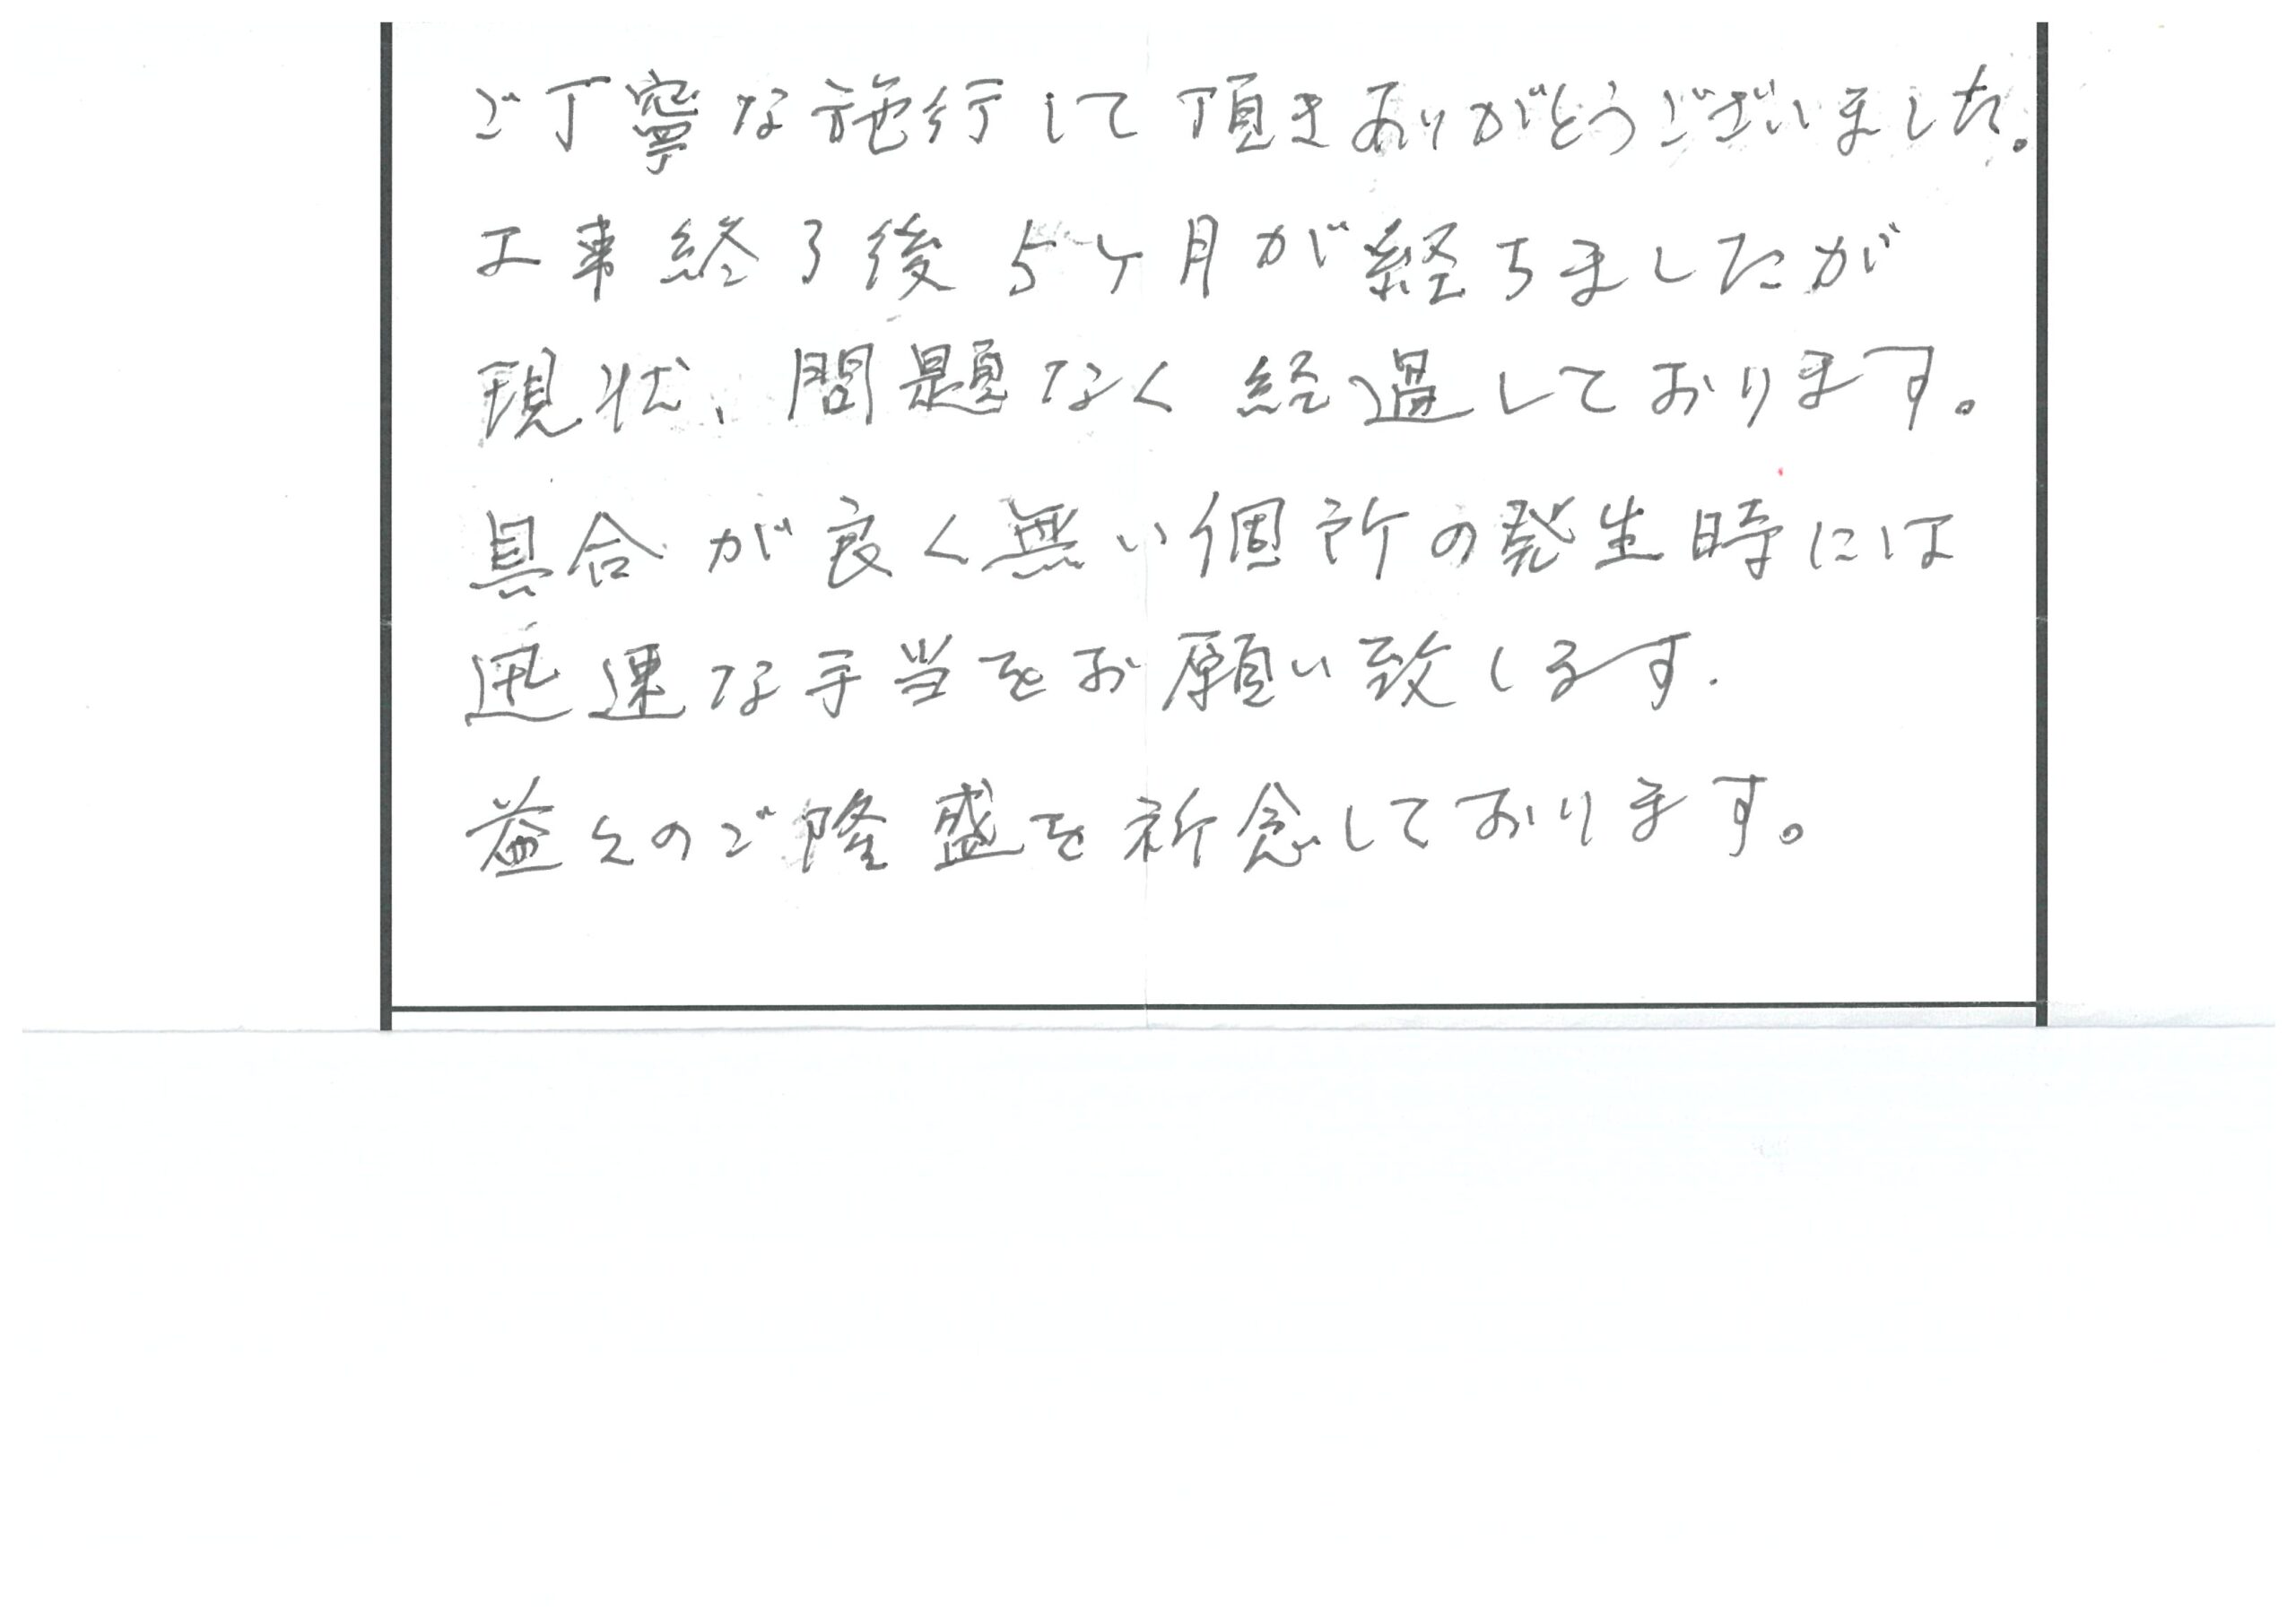 ご丁寧な施行して頂きありがとうございました。
工事終了後5ヶ月が経ちましたが
現状、問題なく経過しております。
具合が良く無い個所の発生時には
迅速な手当をお願い致します.
益々のご隆盛を祈念しております。